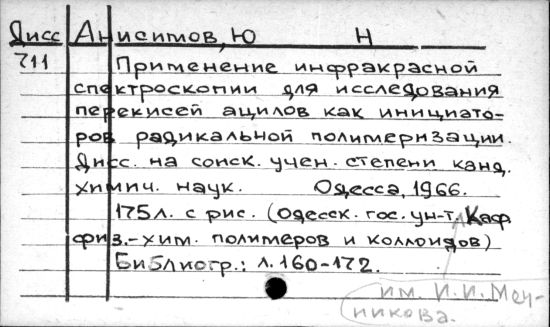 Дисс Анисимов, Ю Н
711 Применение инфракрасной
спектроскопии для исследования
перекисей ацилов как инициато-
ров радикальной полимеризации.
Дисс. на соиск. учен. степени канд.
химич. наук. Одесса, 1966.
175л. с рис. (Одесск. гос. ун-т. Каф
физ.-хим. полимеров и коллоидов)
Библиогр.: л. 160-172.
им. И.И. Меч-
никова.